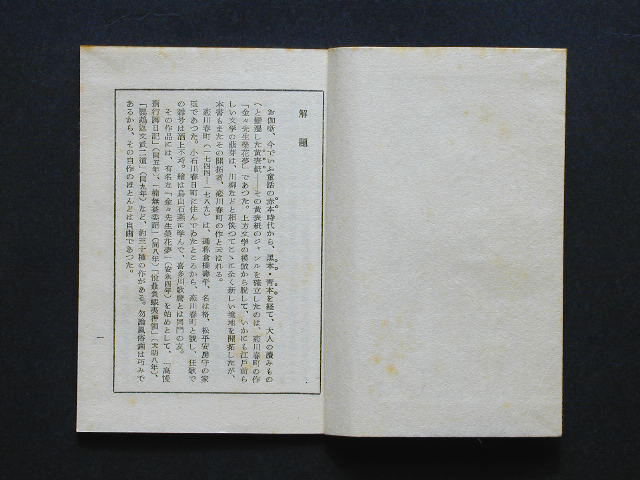 解題
お伽噺、今でいふ童話の赤本時代から、黒本・青本を経て、大人の讀みもの
へと變遷した黄表紙——その黄表紙のジャンルを確立したのは、恋川春町の作
「金々先生榮花夢」であつた。上方文学の模倣から脱して、いかにも江戸前ら
しい文学の萠芽は、川柳などと相俟つてこゝに全く新しい境地を開拓したが、
本書もまたその開拓者、恋川春町の作と云はれる。
恋川春町(一七四四—一七八九)は、通称倉橋壽平、名は格、松平安房守の家
臣であつた。小石川春日町に住んでゐたところから、恋川春町と號し、狂歌で
の雅号は酒上不埒。繪は鳥山石燕に学んで、喜多川歌麿とは同門の友。
その作品には、有名な「金々先生榮花夢」(安永四年)を始めとして、「高慢
齊行脚日記」(同五年)、「無益委記」(同八年)「悦贔屓蝦夷押領」(天明八年)、
「鸚鵡返文武二道」(同九年)など、約三十種の作がある。勿論風俗画は巧みで
あるから、その自作のほとんどは自画であつた。
一